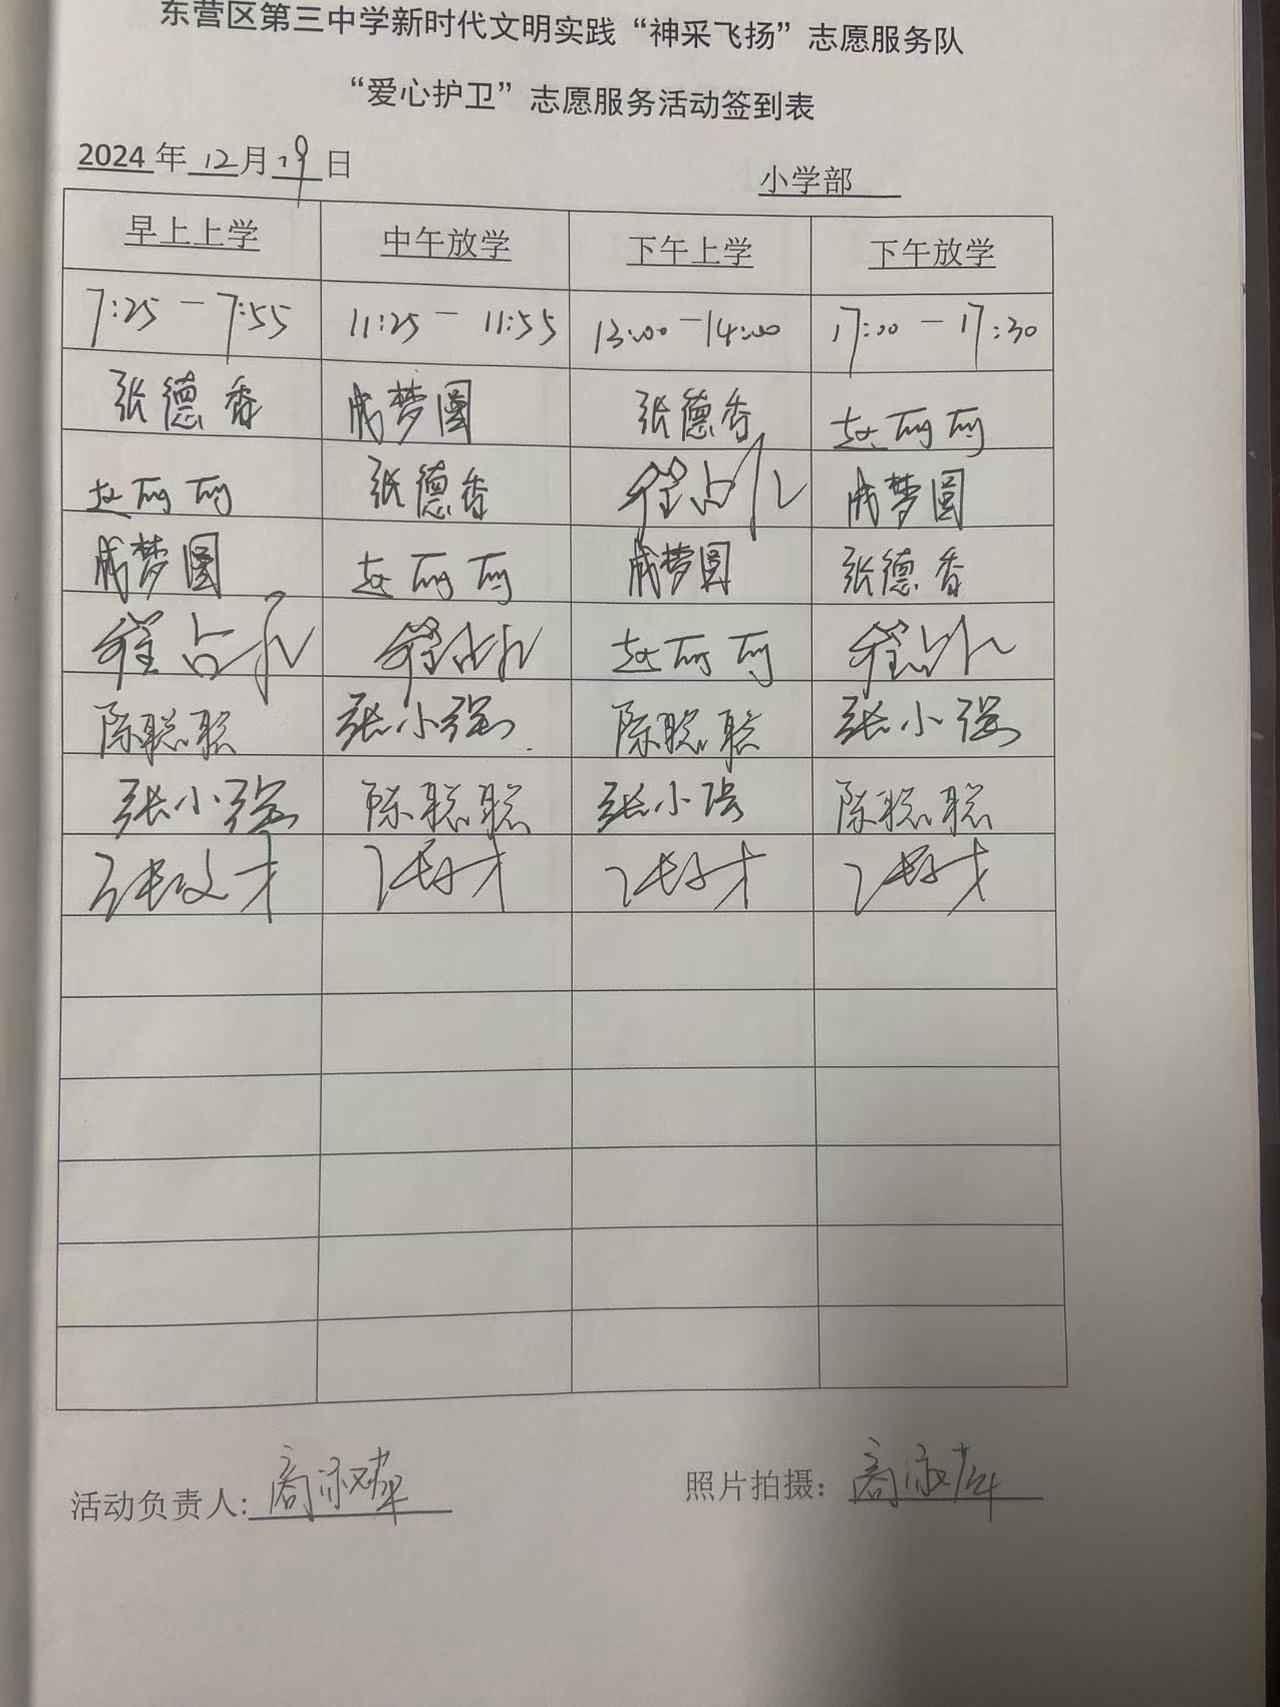 东营区第三中学新时代文明实践“神采飞扬”志愿服务队
“爱心护卫”志愿服务活动签到表
2024 年 12 月 19 日 小学部
早上上学 中午放学 下午上学 下午放学
7:25 — 7:55 11:25 — 11:55 13:00 — 14:00 17:00 — 17:30
张德香 成梦圆 张德香 赵珂珂
赵珂珂 张德香 程占永 成梦圆
成梦圆 赵珂珂 成梦圆 张德香
程占永 程占永 赵珂珂 程占永
陈聪聪 张小强 陈聪聪 张小强
张小强 陈聪聪 张小强 陈聪聪
张文才 张文才 张文才 张文才
活动负责人: 商 照片拍摄: 商